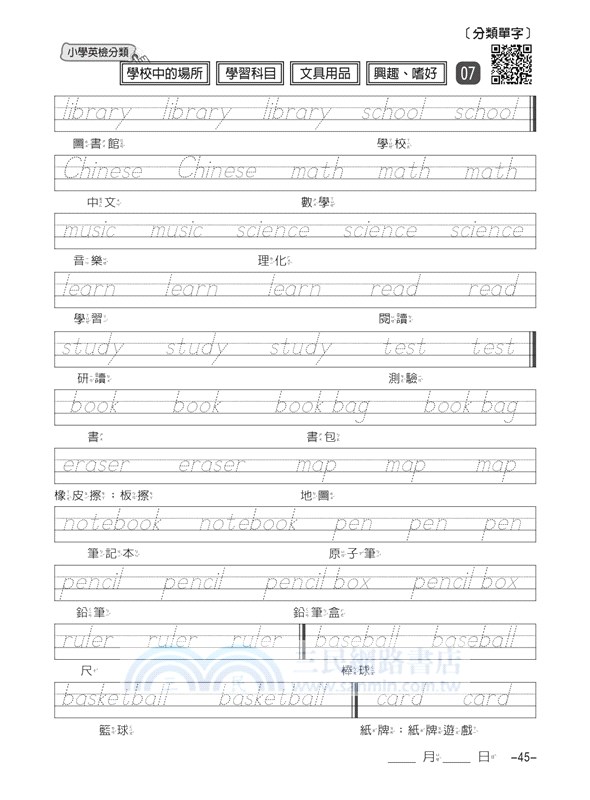 〔分類單字〕
小學英檢分類
學校中的場所 學習科目 文具用品 興趣、嗜好 07
library library library school school
圖書館 學校
Chinese Chinese math math math
中文 數學
music music science science science
音樂 理化
learn learn learn read read
學習 閱讀
study study study test test
研讀 測驗
book book book bag book bag
書 書包
eraser eraser map map map
橡皮擦；板擦 地圖
notebook notebook pen pen pen
筆記本 原子筆
pencil pencil pencil box pencil box
鉛筆 鉛筆盒
ruler ruler ruler baseball baseball
尺 棒球
三民網路書店
www.sanmin.com.tw
basketball basketball card card
籃球 紙牌；紙牌遊戲
月 日 -45-